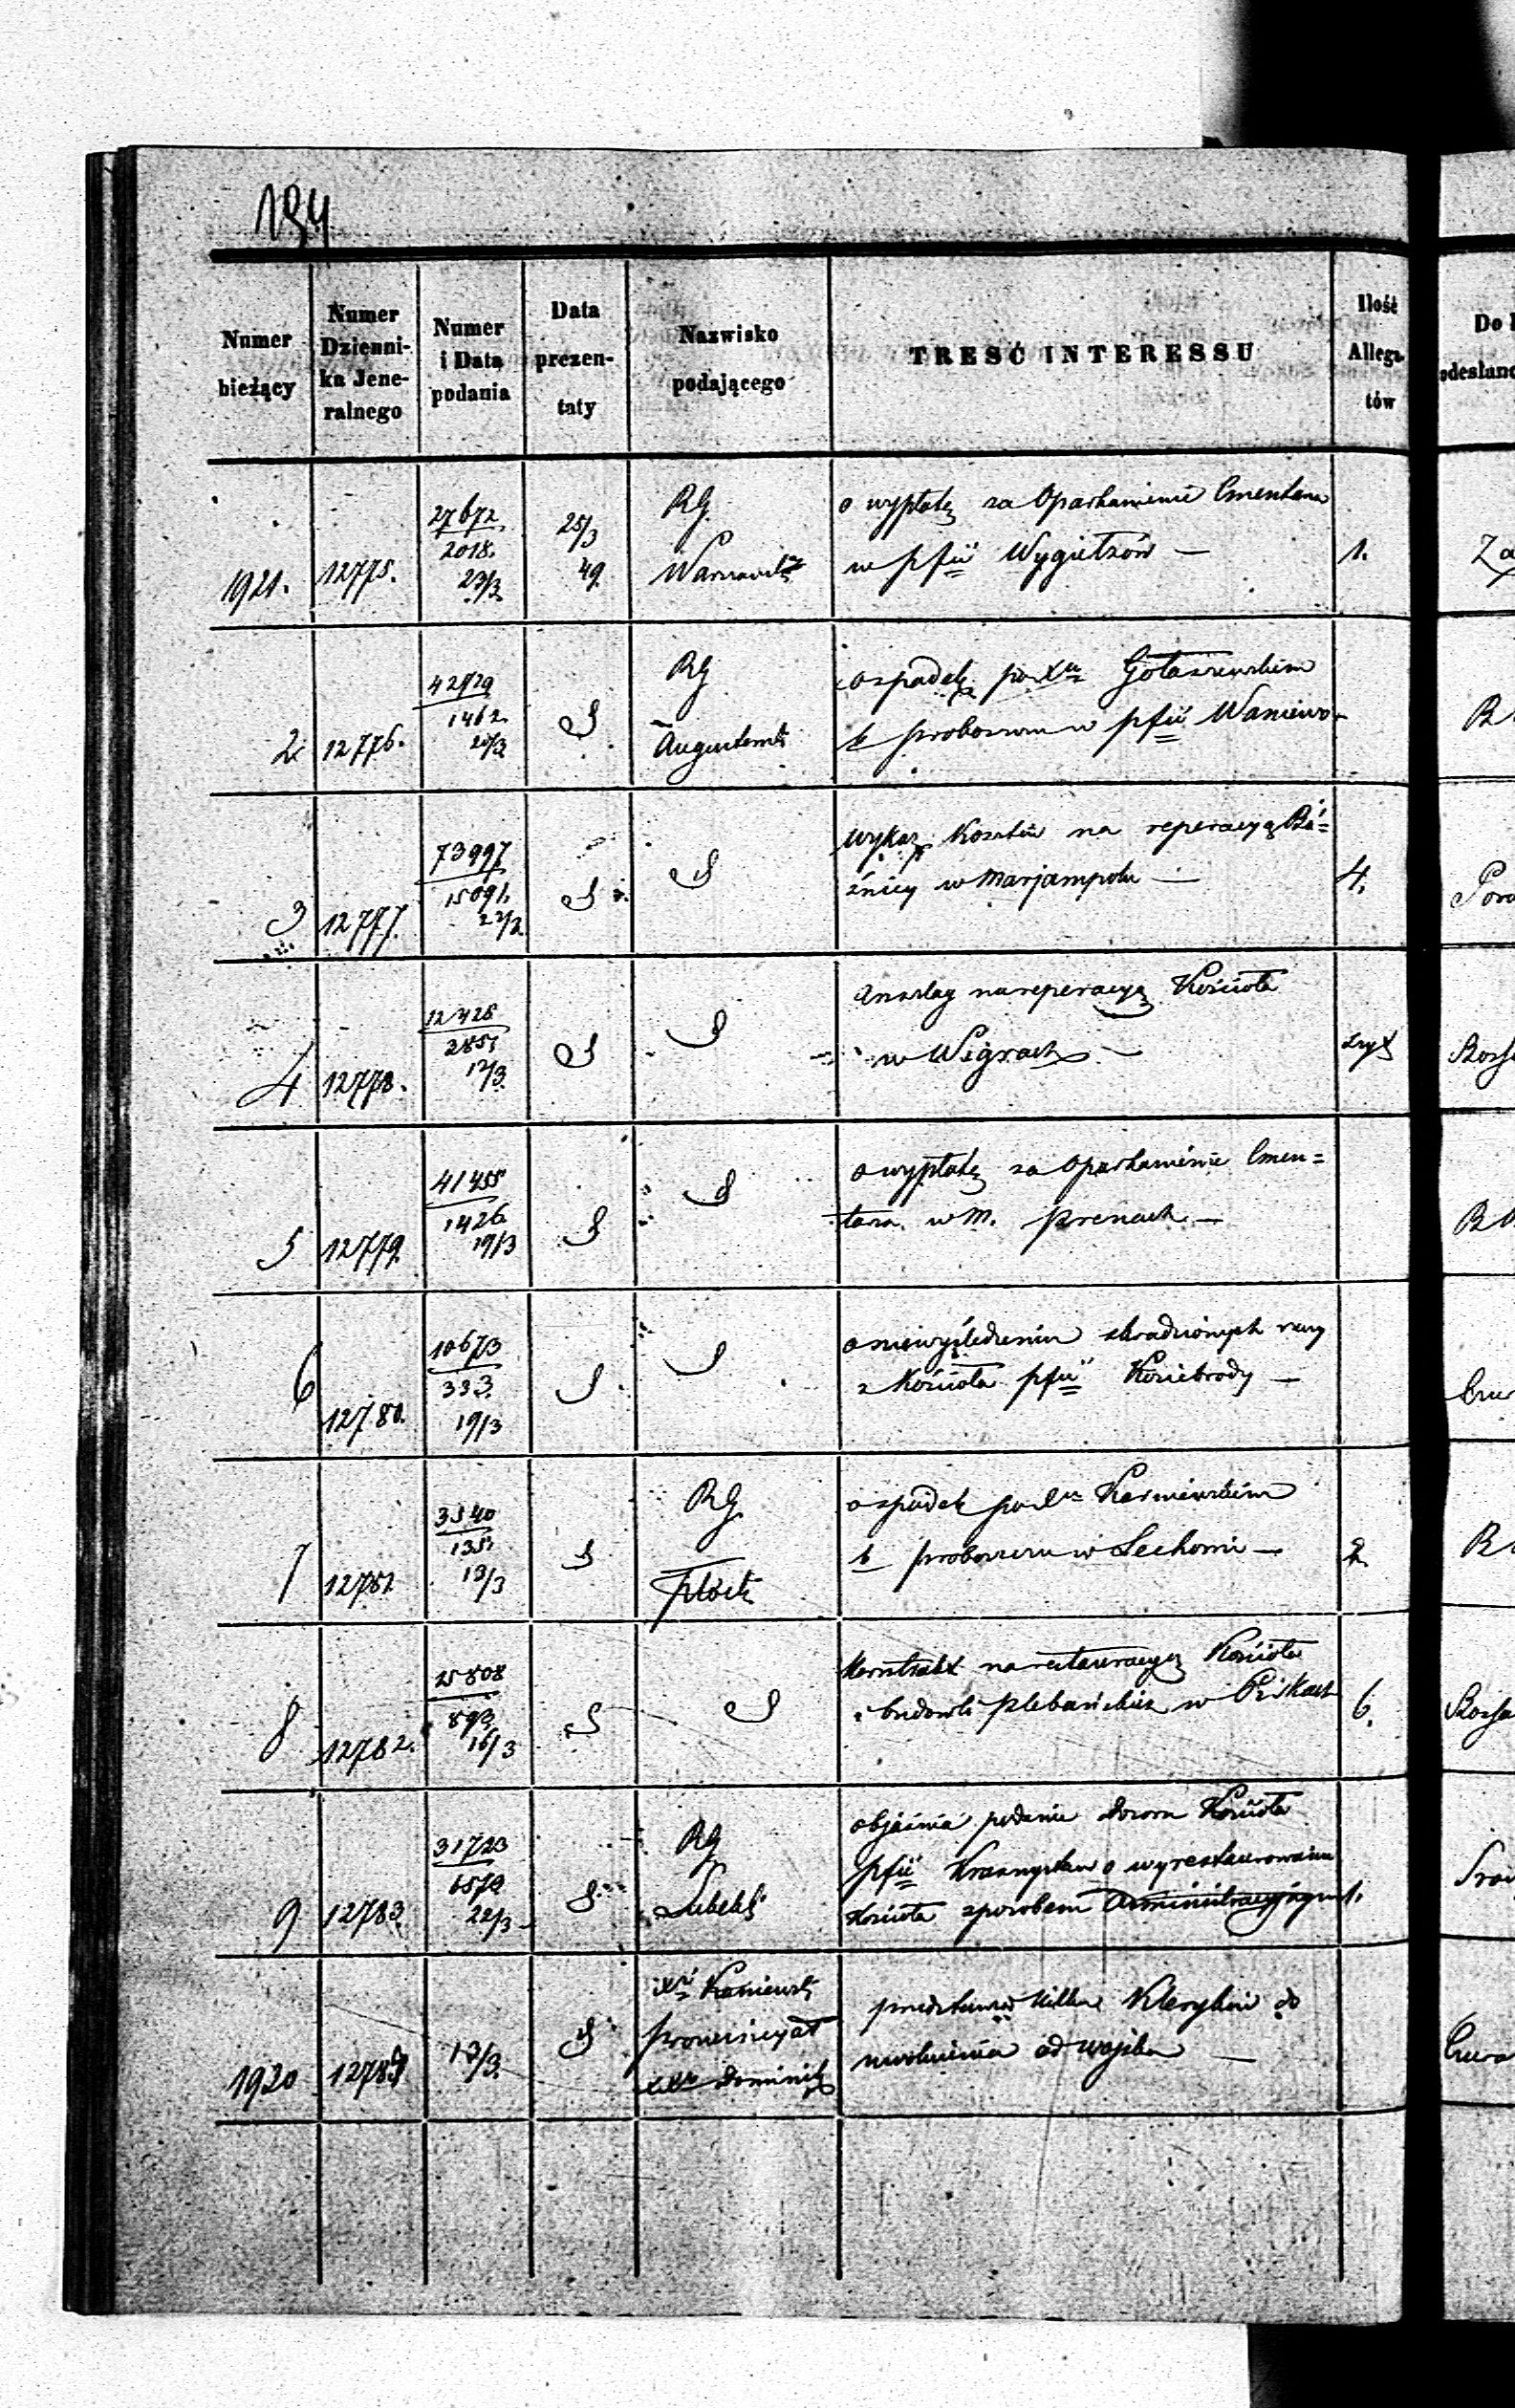 194
Numer bieżący
Numer Dzienni-ka Jene-ralnego
Numer i Data podania
Data prezen-taty
Nazwisko podającego
TRESĆ INTERESSU
Ilość Allega-tów
Do
odesłano
1921. 12775. 27672 2018. 23/3 25/3 49. RG. o wypłatę za Oparkanienie Cmentarza
w pfii Wygiełzów — 1. Za
2 12776. 1462 20/3 RG o spadek po Xu Gołaszewskim
b proboszczu w pfii Waniewo R
3 12777. 73997 15091. 22/2 Wykaz Kosztów na reperacyą Bó=
źnicy w Marjampolu — 4.
4 12778. 12428 12/3 Anszlag na reperacyą Kościoła
w Wigrach —
5 12779 41455 1426 19/3 o wypłatę za Oparkanienie Cmen=
tarza w M. Prenach —
6 12780. 10673 333. 19/3 o niewyśledzeniu skradzionych rzeczy
z Kościoła pfii Koziebrody —
7 12781 3540 135. 13/3 RG. Płock o spadek po Xu
b proboszczu w Lechowie — 2.
8 12782. 25808 893 16/3 Kontrakt na restauracyę Kościoła
i budowli plebańskich w 6.
9 12783 31723 6579 22/3 RG Lubelski objaśnia podanie dozoru Kościoła
pfii Krasnystaw o wyrestaurowanie
Kościoła sposobem Administracyjnym 1.
1930 12784 13/3 Prowincyał Dominik przedstawia kilku Kleryków do
uwolnienia od wojska —